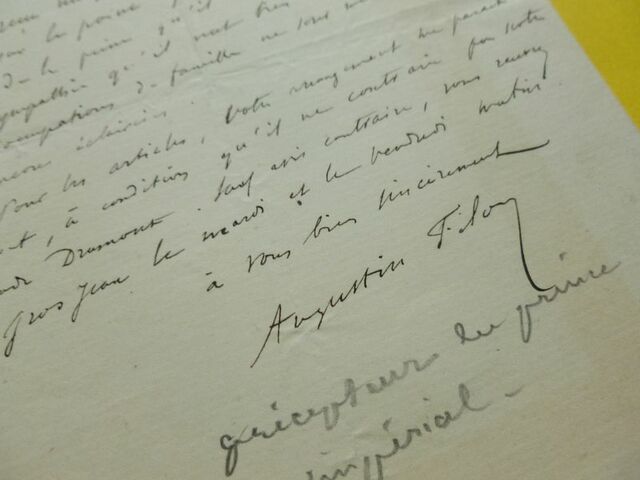 de le prince qu'il
sympathie qu'il veut bien
occupations de famille ne sont
encore éclaircies.
Pour les articles, votre arrangement me paraît
à condition qu'il ne contrarie pas notre
Drumont. Sauf avis contraire, vous recevrez
Gros Jean le mardi et le vendredi matin.
à vous bien sincèrement
Augustin Filon
précepteur du prince
impérial -